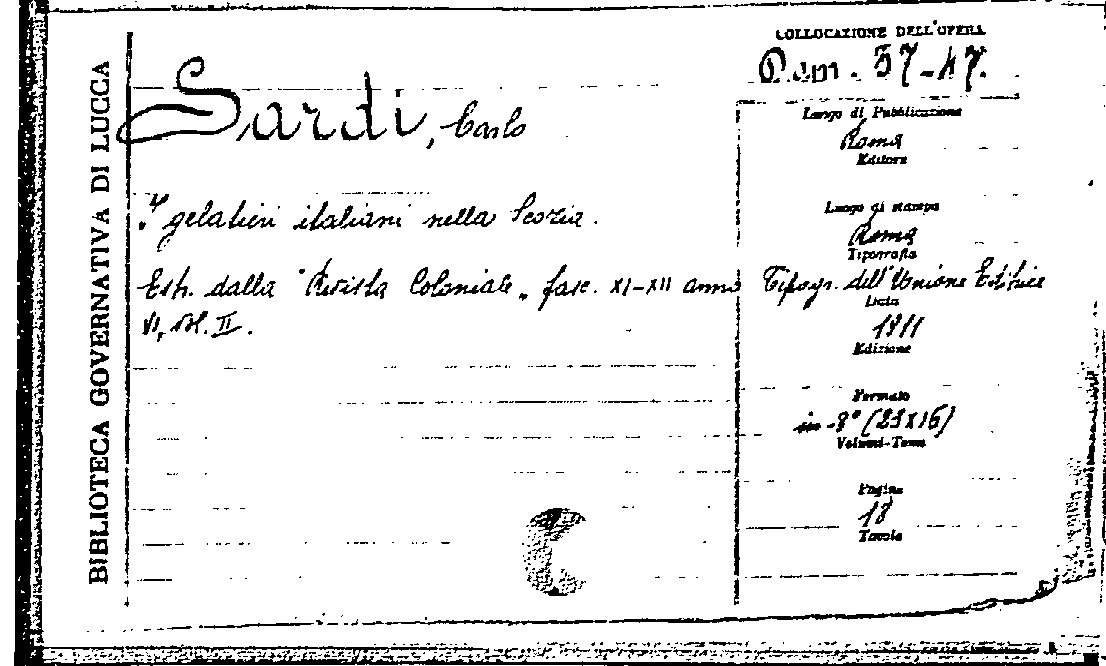 BIBLIOTECA GOVERNATIVA DI LUCCA
COLLOCAZIONE DELL'OPERA
Pam. 37-47.
Sardi, Carlo
I gelatieri italiani nella Scozia.
Estr. dalla "Rivista Coloniale" fasc. XI-XII anno
VI, vol. II.
Luogo di Pubblicazione
Roma
Editore
Luogo di stampa
Roma
Tipografia
Tipogr. dell'Unione Editrice
Data
1911
Edizione
Formato
in-8° (23x16)
Volumi-Tomo
Pagine
18
Tavole